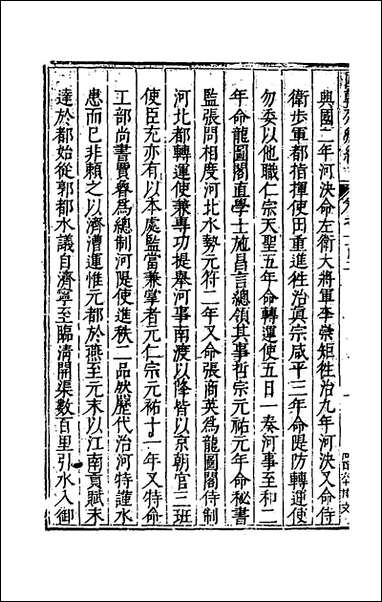 興國二年河決命左衛大將軍李崇矩往治九年河決又命侍
衛步軍都指揮使田重進往治真宗咸平三年命隄防轉運使
勿委以他職仁宗天聖五年命轉運使五日一奏河事至和二
年命龍圖閣直學士施昌言總領其事哲宗元祐元年命秘書
監張問相度河北水勢元符二年又命張商英爲龍圖閣待制
河北都轉運使兼專功提舉河事南渡以降皆以京朝官三班
使臣充亦有以本處監當兼掌者元仁宗元祐十一年又特命
工部尚書賈魯爲總制河隄使進秩二品然歷代治河特護水
患而已非賴之以濟漕運惟元都於燕至元末以江南貢賦未
達於都始從郭都水議自濟寧至臨清開渠數百里引水入御